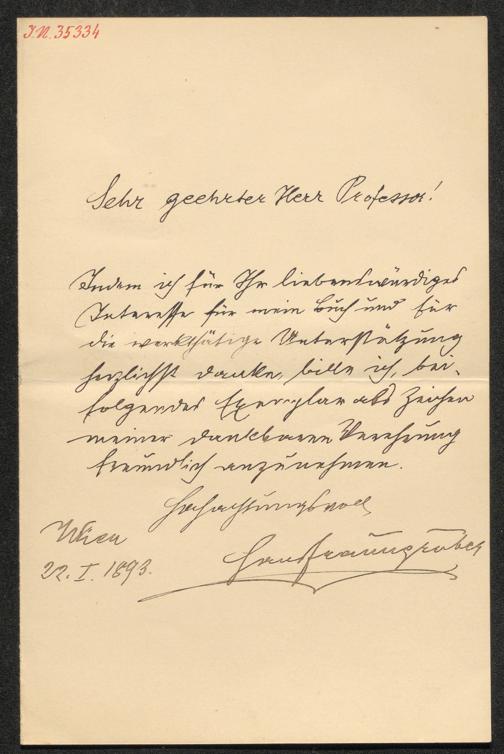 I.N. 35334
Sehr geehrter Herr Professor!
Indem ich für Ihr liebenswürdiges
Interesse für mein Buch und für
die werkthätige Unterstützung
herzlichst danke, bitte ich, bei-
folgendes Exemplar als Zeichen
meiner dankbaren Verehrung
freundlich anzunehmen.
Hochachtungsvoll
Wien
Hans Fraungruber
22. I. 1893.